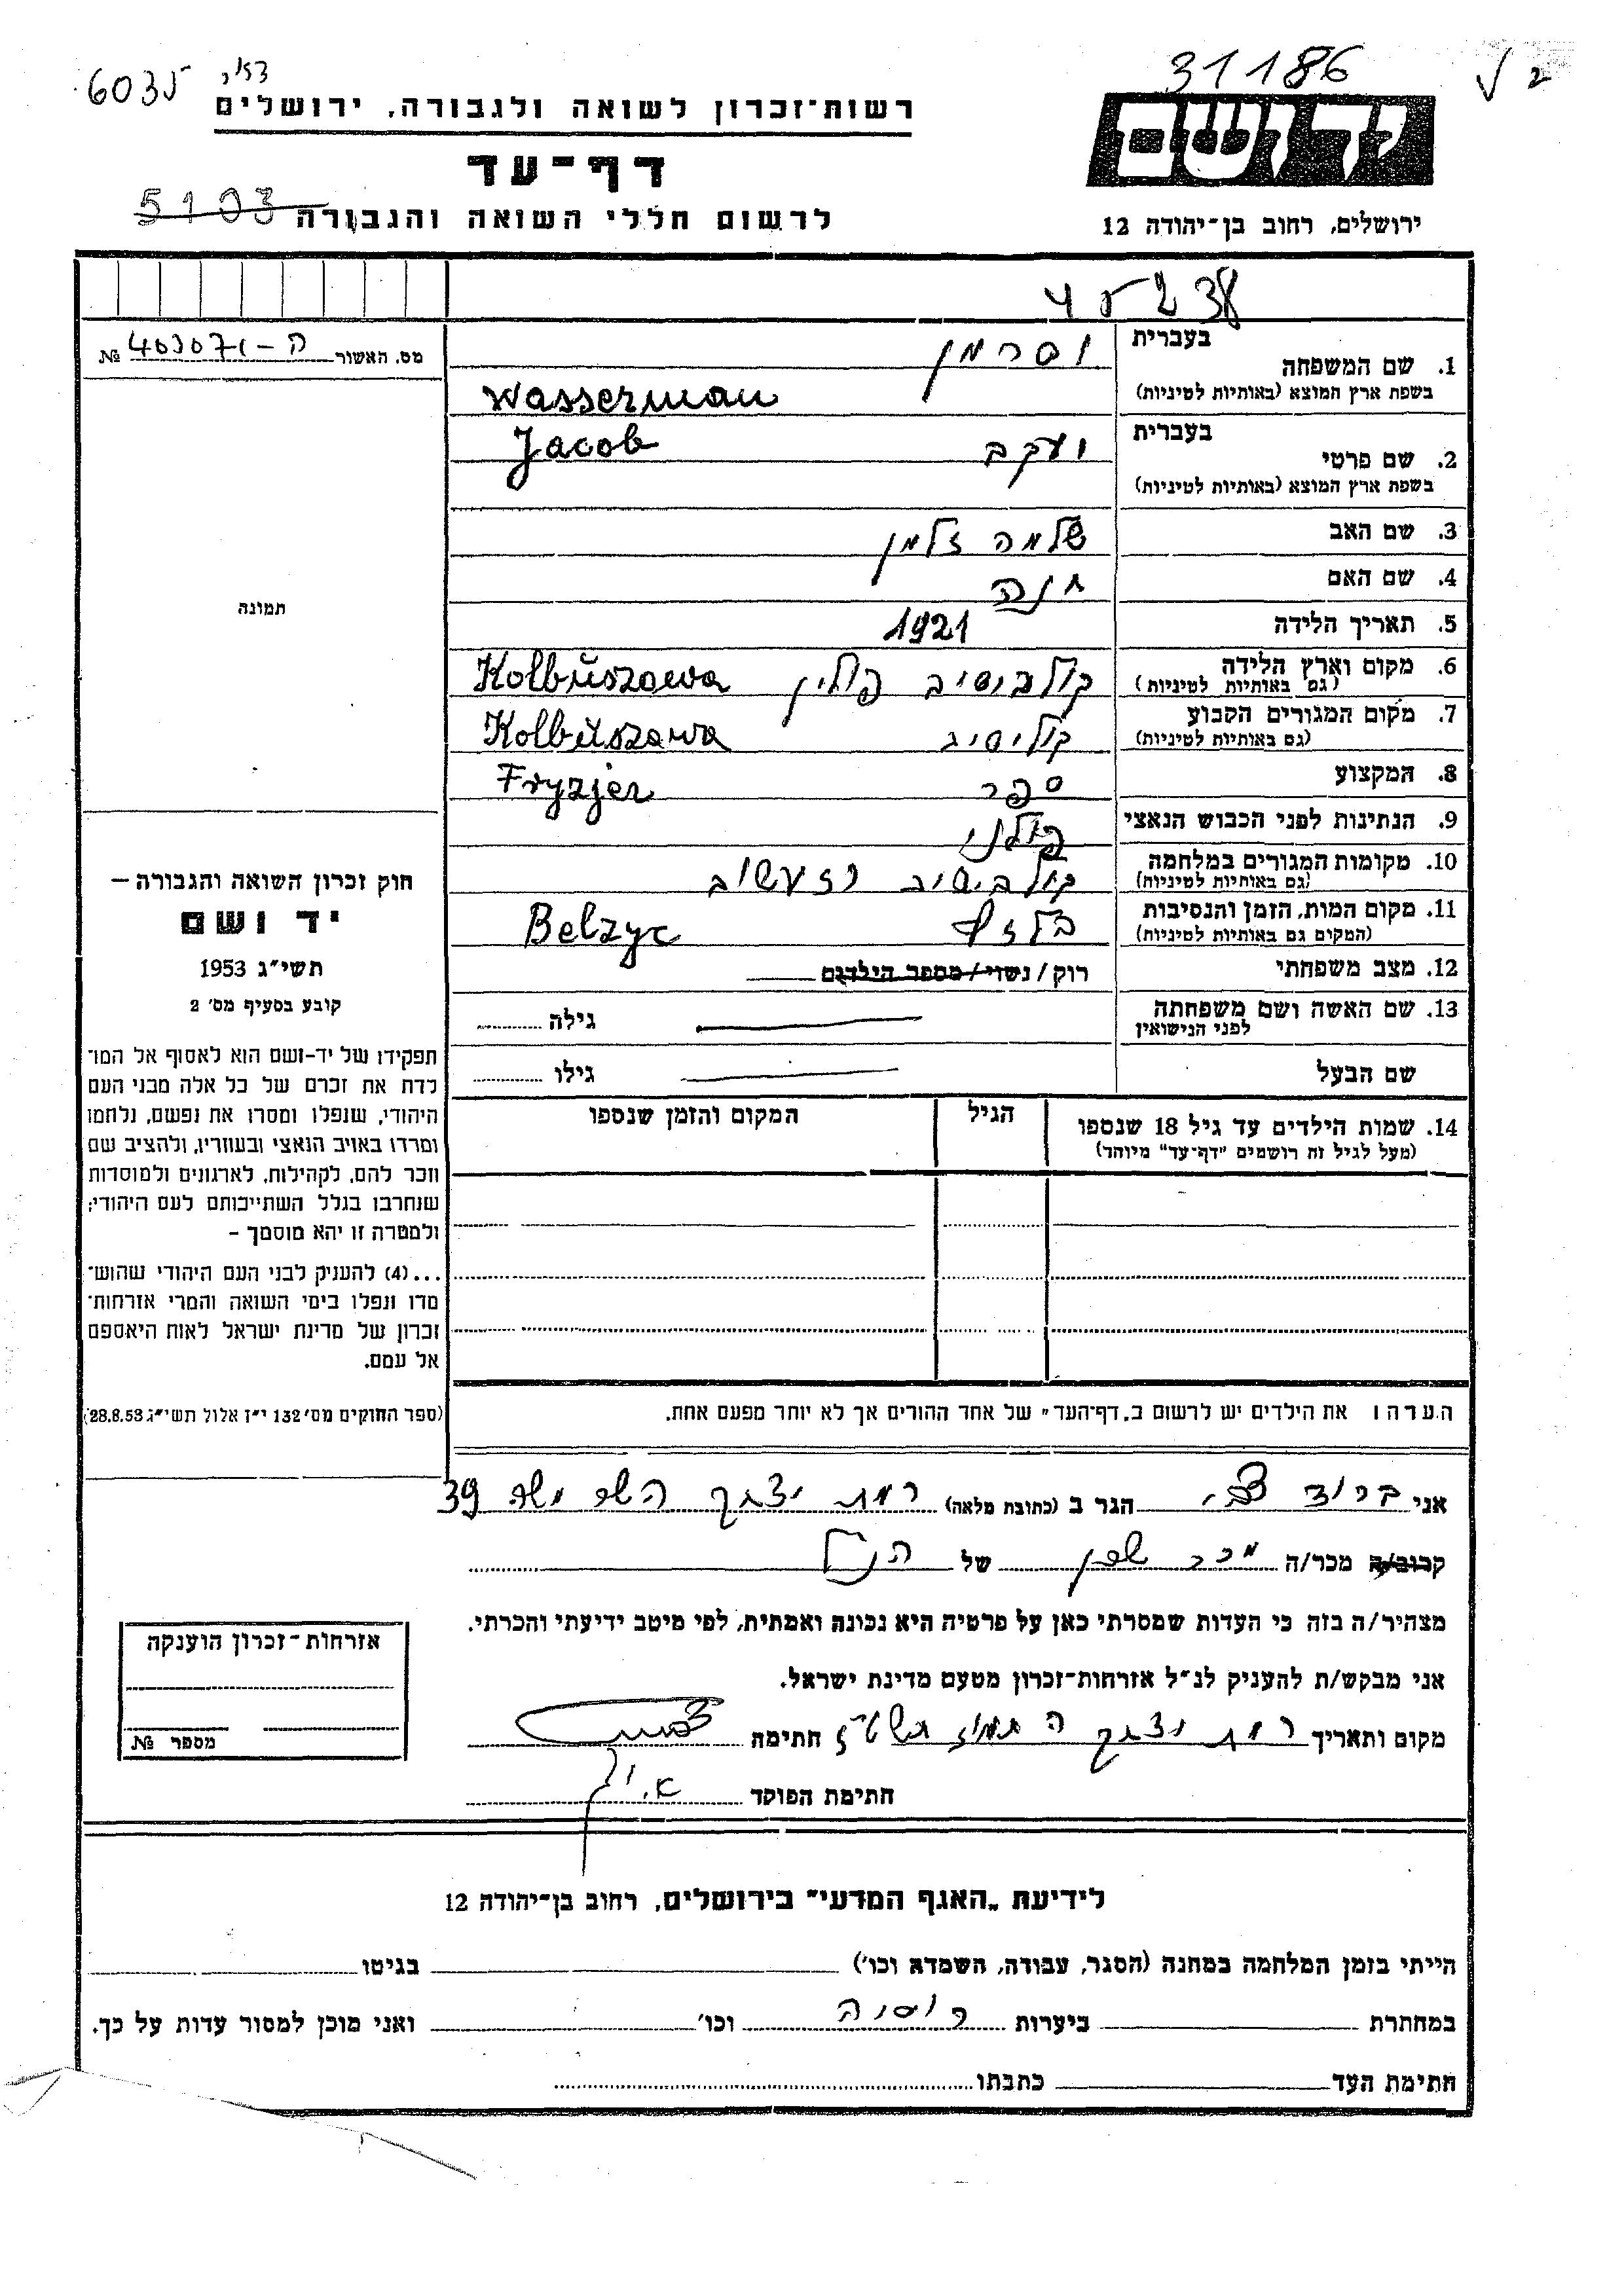 6035
31186
2
רשות־זכרון לשואה ולגבורה, ירושלים
דף־עד
5103
לרשום חללי השואה והגבורה
ידושם
ירושלים, רחוב בן־יהודה 12
238
מס. האשור ה-403071 №
בעברית
1. שם המשפחה וסרמן
בשפת ארץ המוצא (באותיות לטיניות) Wasserman
בעברית
2. שם פרטי יעקב Jacob
בשפת ארץ המוצא (באותיות לטיניות)
3. שם האב שלמה זלמן
4. שם האם חנה
5. תאריך הלידה 1921
6. מקום וארץ הלידה קולבושיב פולין Kolbuszowa
(גם באותיות לטיניות)
7. מקום המגורים הקבוע Kolbuszowa
(גם באותיות לטיניות)
8. המקצוע ספר Fryzjer
9. הנתינות לפני הכבוש הנאצי פולני
10. מקומות המגורים במלחמה קולבישיב
(גם באותיות לטיניות)
11. מקום המות, הזמן והנסיבות Belzyc
(המקום גם באותיות לטיניות)
12. מצב משפחתי רוק / נשוי / מספר הילדים
13. שם האשה ושם משפחתה גילה
לפני הנישואין
שם הבעל גילו
14. שמות הילדים עד גיל 18 שנספו הגיל המקום והזמן שנספו
(מעל לגיל זה רושמים "דף־עד" מיוחד)
הערה: את הילדים יש לרשום ב„דף־העד" של אחד ההורים אך לא יותר מפעם אחת.
תמונה
חוק זכרון השואה והגבורה —
יד ושם
תשי״ג 1953
קובע בסעיף מס׳ 2
תפקידו של יד-ושם הוא לאסוף אל המו־
לדת את זכרם של כל אלה מבני העם
היהודי, שנפלו ומסרו את נפשם, נלחמו
ומרדו באויב הנאצי ובעוזריו, ולהציב שם
וזכר להם, לקהילות, לארגונים ולמוסדות
שנחרבו בגלל השתייכותם לעם היהודי;
ולמטרה זו יהא מוסמך –
...(4) להעניק לבני העם היהודי שהוש־
מדו ונפלו בימי השואה והמרי אזרחות־
זכרון של מדינת ישראל לאות היאספם
אל עמם.
(ספר החוקים מס׳ 132 י״ז אלול תשי״ג 28.8.53)
אני ברוד צבי הגר ב (כתובת מלאה) רמת יצחק 39
קרוב/ה מכר/ה מכר שכן של הנ״ל
מצהיר/ה בזה כי העדות שמסרתי כאן על פרטיה היא נכונה ואמתית, לפי מיטב ידיעתי והכרתי.
אני מבקש/ת להעניק לנ״ל אזרחות־זכרון מטעם מדינת ישראל.
מקום ותאריך רמת יצחק ה תמוז חתימה
חתימת הפוקד
אזרחות־זכרון הוענקה
מספר №
לידיעת „האגף המדעי" בירושלים, רחוב בן־יהודה 12
הייתי בזמן המלחמה במחנה (הסגר, עבודה, השמדה וכו׳) בגיטו
במחתרת ביערות רוסיה וכו׳ ואני מוכן למסור עדות על כך.
חתימת העד כתבתו